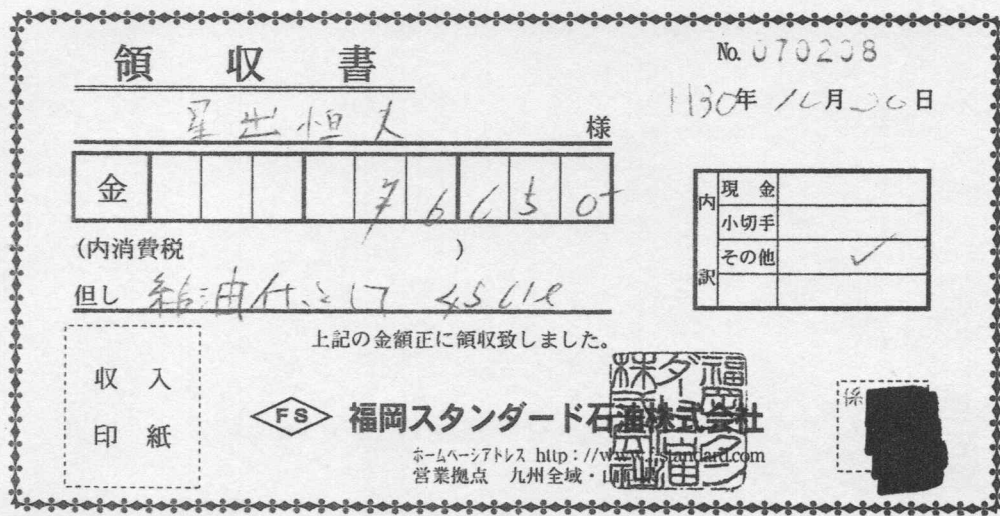 領収書
No. 070208
H30年 月 日
星出恒人 様
金
(内消費税 )
但し 給油代として
内訳
現金
小切手
その他 ✓
上記の金額正に領収致しました。
収入
印紙
FS 福岡スタンダード石油株式会社
ホームページアドレス http://www.f-standard.com
営業拠点 九州全域・山口県
係